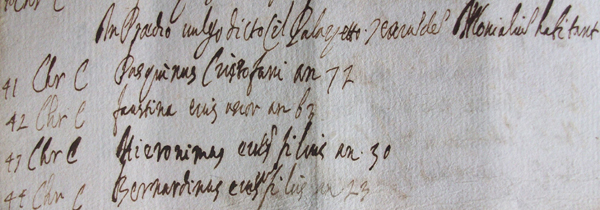 In Predio vulgo dicto il Palazzetto Monialiu habitant
41 Chr C Pasquinus Cristofani an 72
42 Chr C faustina eius uxor an 63
43 Chr C Hieronimus eius filius an. 30
44 Chr C Bernardinus eius filius an 23